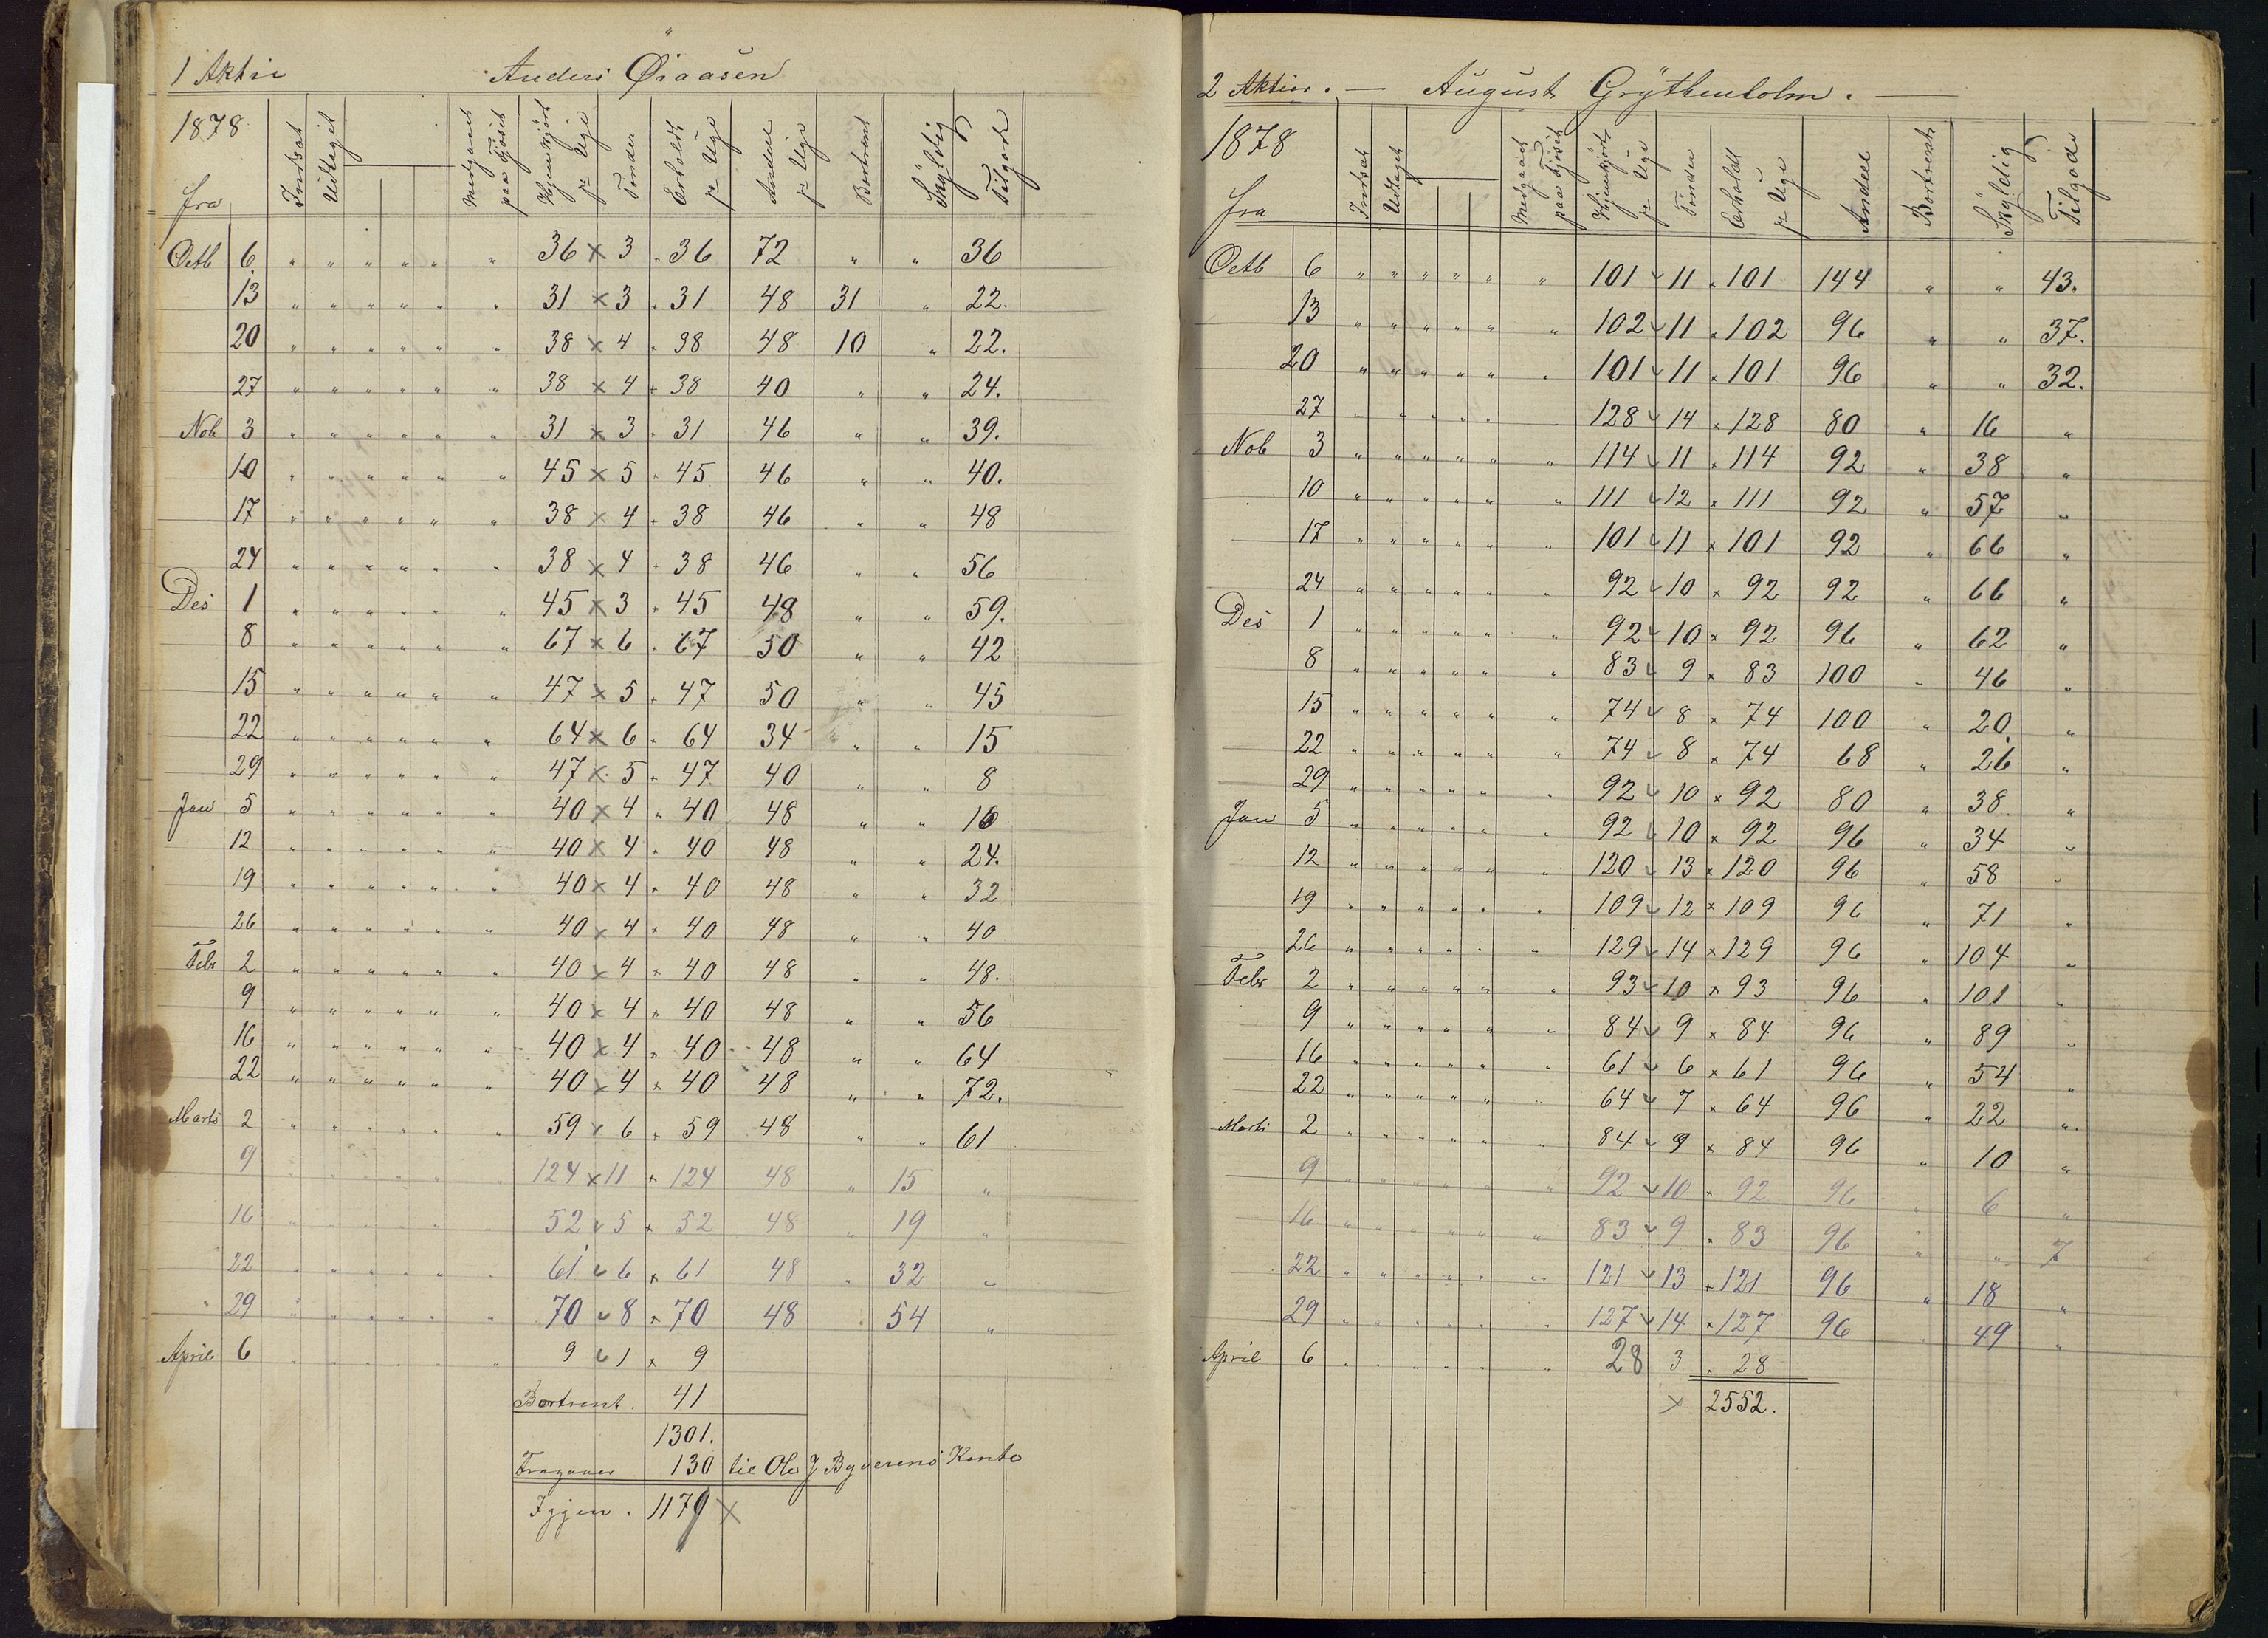 1 Aktie Anders Øiaasen
1878 fra Indsat Udtaget Medgaaet paa Fjøset Hjemkjørt pr Uge Tønder Erholdt pr Uge Andeel pr Uge Bortrent Skyldig Tilgode
Octb 6 " " " " " " 36 x 3 " 36 72 " " 36
13 " " " " " " 31 x 3 " 31 48 31 " 22.
20 " " " " " " 38 x 4 " 38 48 10 " 22.
27 " " " " " " 38 x 4 " 38 40 " " 24.
Nob 3 " " " " " " 31 x 3 " 31 46 " " 39.
10 " " " " " " 45 x 5 " 45 46 " " 40.
17 " " " " " " 38 x 4 " 38 46 " " 48
24 " " " " " " 38 x 4 " 38 46 " " 56
Des 1 " " " " " " 45 x 3 " 45 48 " " 59.
8 " " " " " " 67 x 6 " 67 50 " " 42
15 " " " " " " 47 x 5 " 47 50 " " 45
22 " " " " " " 64 x 6 " 64 34 " " 15
29 " " " " " " 47 x 5 " 47 40 " " 8
Jan 5 " " " " " " 40 x 4 " 40 48 " " 16
12 " " " " " " 40 x 4 " 40 48 " " 24.
19 " " " " " " 40 x 4 " 40 48 " " 32
26 " " " " " " 40 x 4 " 40 48 " " 40
Febr 2 " " " " " " 40 x 4 " 40 48 " " 48.
9 " " " " " " 40 x 4 " 40 48 " " 56
16 " " " " " " 40 x 4 " 40 48 " " 64
22 " " " " " " 40 x 4 " 40 48 " " 72.
Marts 2 " " " " " " 59 x 6 " 59 48 " " 61
9 " " " " " " 124 x 11 x 124 48 " 15 "
16 " " " " " " 52 v 5 x 52 48 " 19 "
22 " " " " " " 61 v 6 x 61 48 " 32 "
" 29 " " " " " " 70 v 8 x 70 48 " 54 "
April 6 " " " " " " 9 v 1 x 9
Bortrent. 41
1301.
130 til Ole J Byverens Konto
Igjen. 1179 x
2 Aktier. — August Grythenholm. —
1878 fra Indsat Udtaget Medgaaet paa Fjøset Hjemkjørt pr Uge Tønder Erholdt pr Uge Andeel Bortrent Skyldig Tilgode
Octb 6 " " " " " " 101 v 11 x 101 144 " " 43.
13 " " " " " " 102 v 11 x 102 96 " " 37.
20 " " " " " " 101 v 11 x 101 96 " " 32.
27 " " " " " " 128 v 14 x 128 80 " 16 "
Nob 3 " " " " " " 114 v 11 x 114 92 " 38 "
10 " " " " " " 111 v 12 x 111 92 " 57 "
17 " " " " " " 101 v 11 x 101 92 " 66 "
24 " " " " " " 92 v 10 x 92 92 " 66 "
Des 1 " " " " " " 92 v 10 x 92 96 " 62 "
8 " " " " " " 83 v 9 x 83 100 " 46 "
15 " " " " " " 74 v 8 x 74 100 " 20 "
22 " " " " " " 74 v 8 x 74 68 " 26 "
29 " " " " " " 92 v 10 x 92 80 " 38 "
Jan 5 " " " " " " 92 v 10 x 92 96 " 34 "
12 " " " " " " 120 v 13 x 120 96 " 58 "
19 " " " " " " 109 v 12 x 109 96 " 71 "
26 " " " " " " 129 v 14 x 129 96 " 104 "
Febr 2 " " " " " " 93 v 10 x 93 96 " 101 "
9 " " " " " " 84 v 9 x 84 96 " 89 "
16 " " " " " " 61 v 6 x 61 96 " 54 "
22 " " " " " " 64 v 7 x 64 96 " 22 "
Marts 2 " " " " " " 84 v 9 x 84 96 " 10 "
9 " " " " " " 92 v 10 x 92 96 " 6 "
16 " " " " " " 83 v 9 x 83 96 " " 7
22 " " " " " " 121 v 13 x 121 96 " 18 "
29 " " " " " " 127 v 14 x 127 96 " 49 "
April 6 " " " " " " 28 3 x 28
x 2552.